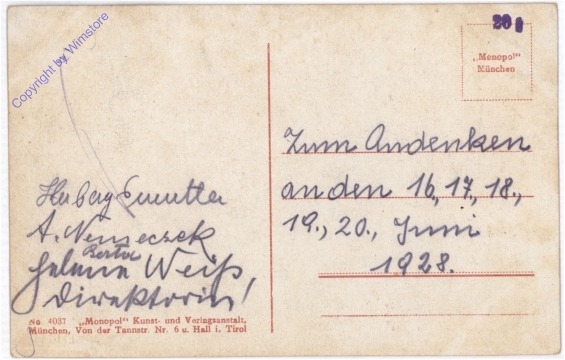 Copyright by Wimstore
20
A. Nemeczek
Berta
Helena Weiß,
Direktorin!
No. 4037 „Monopol“ Kunst- und Verlagsanstalt,
München, Von der Tannstr. Nr. 6 u. Hall i. Tirol
„Monopol“
München
Zum Andenken
an den 16., 17., 18.,
19., 20., Juni
1928.